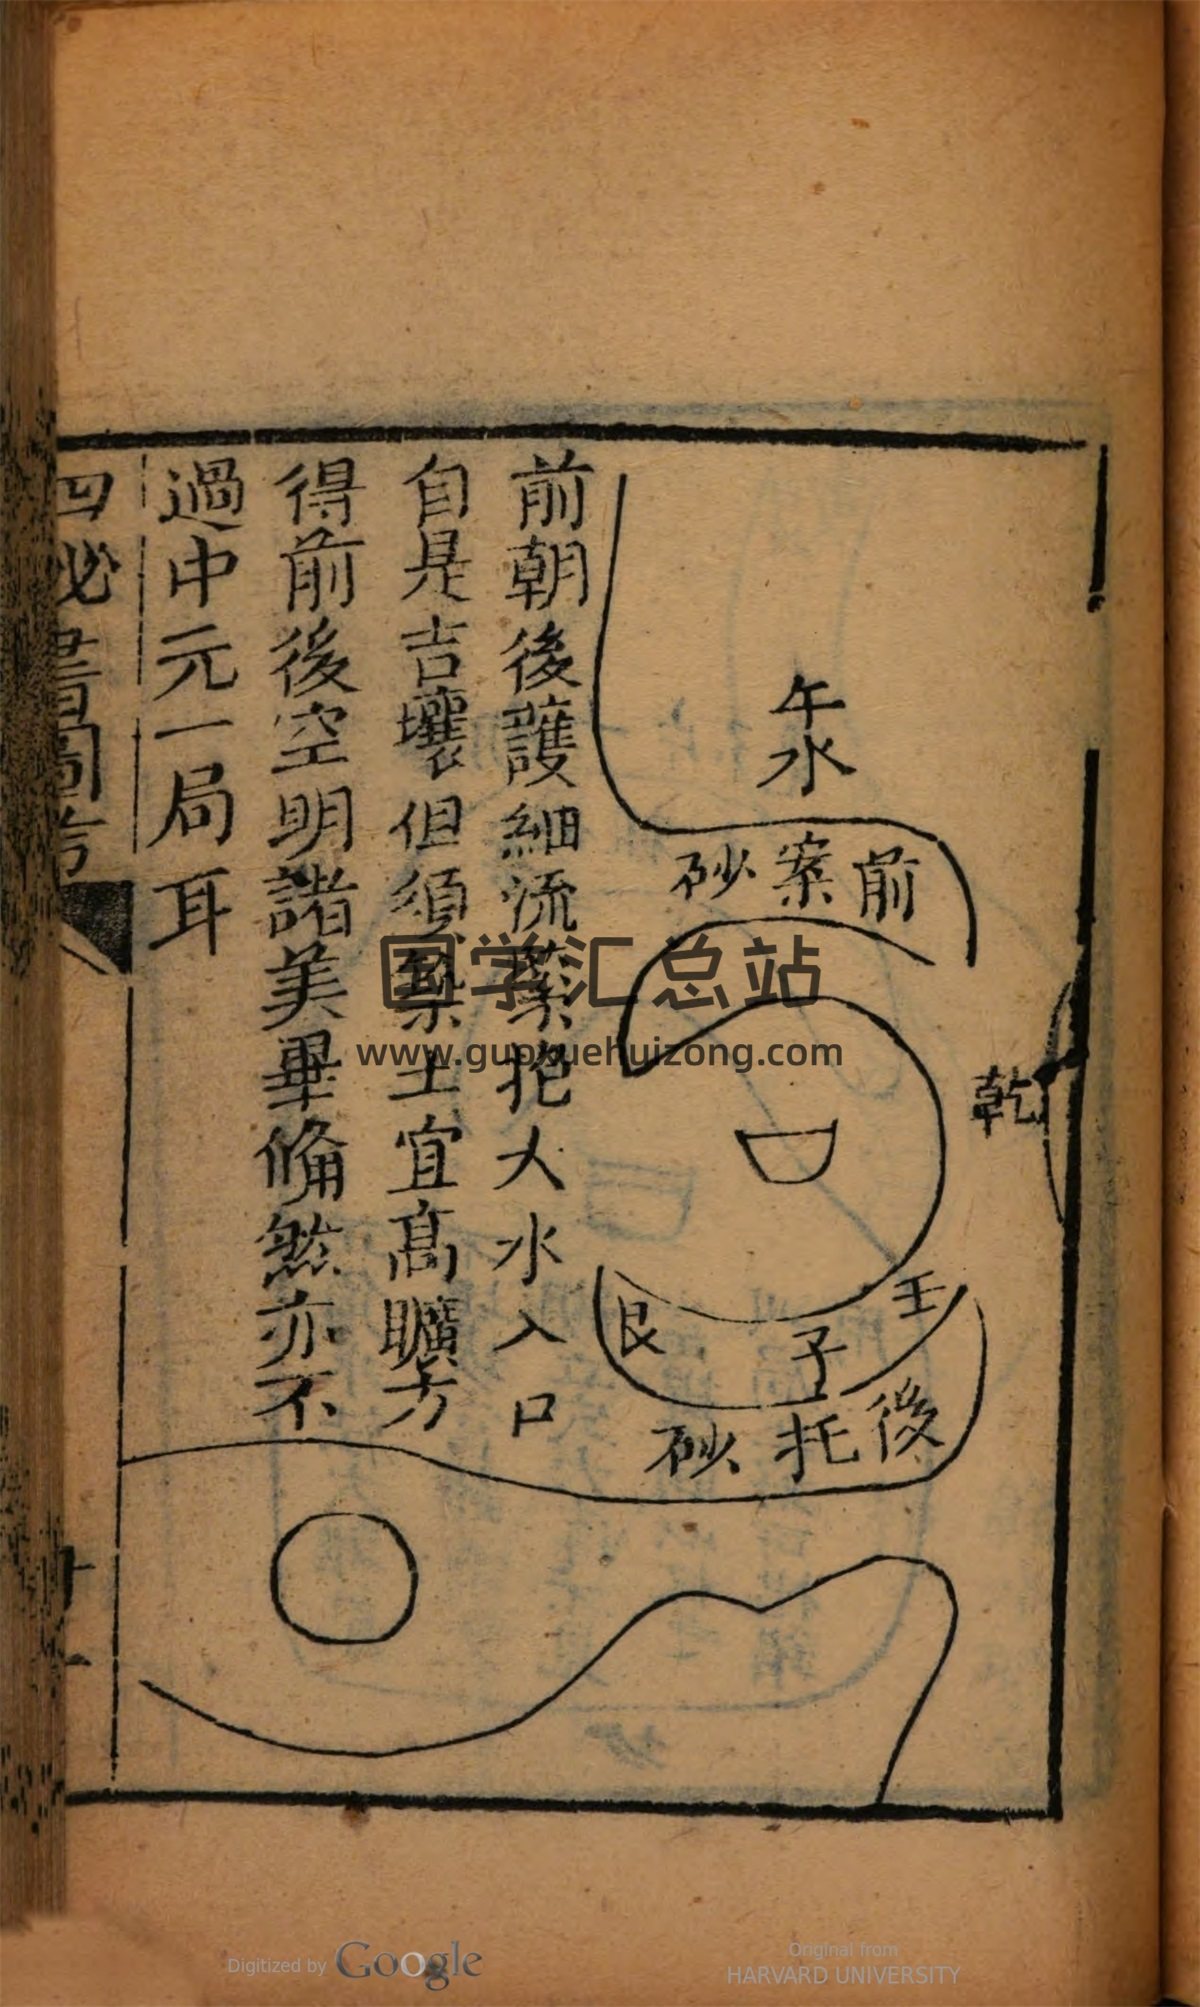 午水
前案砂
乾
壬
子
艮
後托砂
前朝後護細流縈抱大水入口
自是吉壤但須案土宜高曠方
得前後空明諸美畢俻然亦不
過中元一局耳
四祕書圖
十一
国学汇总站
www.guoxuehuizong.com
Digitized by Google
Original from
HARVARD UNIVERSITY